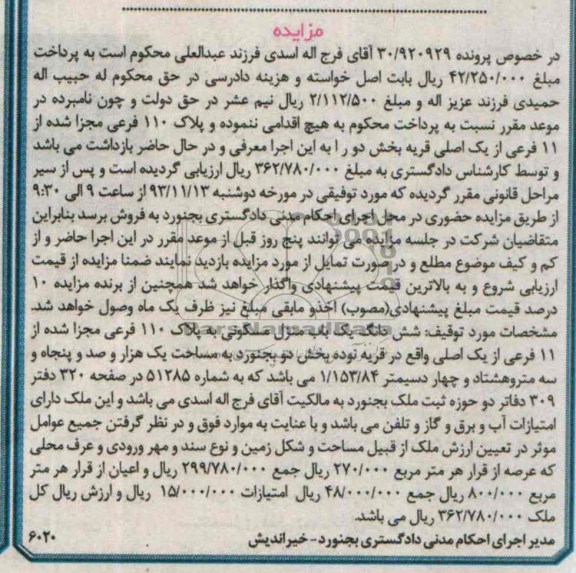 مزایده
در خصوص پرونده ۳۰/۹۲۰۹۲۹ آقای فرج اله اسدی فرزند عبدالعلی محکوم است به پرداخت
مبلغ ۴۲/۲۵۰/۰۰۰ ریال بابت اصل خواسته و هزینه دادرسی در حق محکوم له حبیب اله
حمیدی فرزند عزیز اله و مبلغ ۲/۱۱۲/۵۰۰ ریال نیم عشر در حق دولت و چون نامبرده در
موعد مقرر نسبت به پرداخت محکوم به هیچ اقدامی ننموده و پلاک ۱۱۰ فرعی مجزا شده از
۱۱ فرعی از یک اصلی قریه بخش دو را به این اجرا معرفی و در حال حاضر بازداشت می باشد
و توسط کارشناس دادگستری به مبلغ ۳۶۲/۷۸۰/۰۰۰ ریال ارزیابی گردیده است و پس از سیر
مراحل قانونی مقرر گردیده که مورد توقیفی در مورخه دوشنبه ۹۳/۱۱/۱۳ از ساعت ۹ الی ۹:۳۰
از طریق مزایده حضوری در محل اجرای احکام مدنی دادگستری بجنورد به فروش برسد بنابراین
متقاضیان شرکت در جلسه مزایده می توانند پنج روز قبل از موعد مقرر در این اجرا حاضر و از
کم و کیف موضوع مطلع و در صورت تمایل از مورد مزایده بازدید نمایند ضمنا مزایده از قیمت
ارزیابی شروع و به بالاترین قیمت پیشنهادی واگذار خواهد شد همچنین از برنده مزایده ۱۰
درصد قیمت مبلغ پیشنهادی(مصوب) اخذو مابقی مبلغ نیز ظرف یک ماه وصول خواهد شد.
مشخصات مورد توقیف: شش دانگ یک باب منزل مسکونی به پلاک ۱۱۰ فرعی مجزا شده از
۱۱ فرعی از یک اصلی واقع در قریه توده بخش دو بجنورد به مساحت یک هزار و صد و پنجاه و
سه متروهشتاد و چهار دسیمتر ۱/۱۵۳/۸۴ می باشد که به شماره ۵۱۲۸۵ در صفحه ۳۲۰ دفتر
۳۰۹ دفاتر دو حوزه ثبت ملک بجنورد به مالکیت آقای فرج اله اسدی می باشد و این ملک دارای
امتیازات آب و برق و گاز و تلفن می باشد و با عنایت به موارد فوق و در نظر گرفتن جمیع عوامل
موثر در تعیین ارزش ملک از قبیل مساحت و شکل زمین و نوع سند و مهر ورودی و عرف محلی
که عرصه از قرار هر متر مربع ۲۷۰/۰۰۰ ریال جمع ۲۹۹/۷۸۰/۰۰۰ ریال و اعیان از قرار هر متر
مربع ۸۰۰/۰۰۰ ریال جمع ۴۸/۰۰۰/۰۰۰ ریال امتیازات ۱۵/۰۰۰/۰۰۰ ریال و ارزش ریال کل
ملک ۳۶۲/۷۸۰/۰۰۰ ریال می باشد.
مدیر اجرای احکام مدنی دادگستری بجنورد - خیراندیش
۶۰۲۰